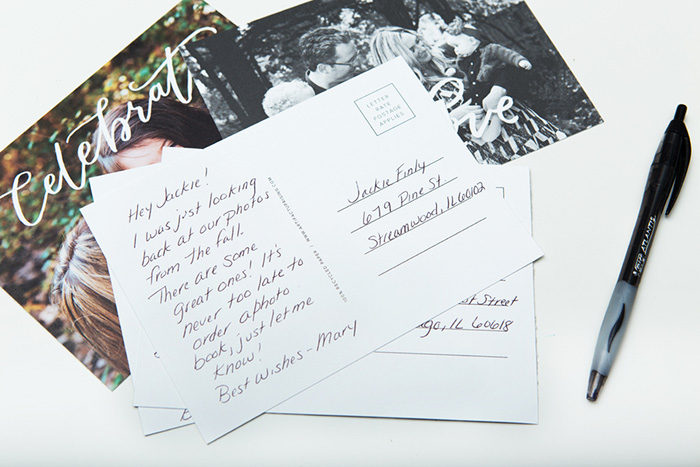 Celebrat
Hey Jackie!
I was just looking
back at our photos
from the fall.
There are some
great ones! It's
never too late to
order a photo
book, just let me
know!
Best Wishes - Mary
LETTER
RATE
POSTAGE
APPLIES
Jackie Finly
679 Pine St
Streamwood, IL 60102
St Street
IL 60618
ATLANTIS